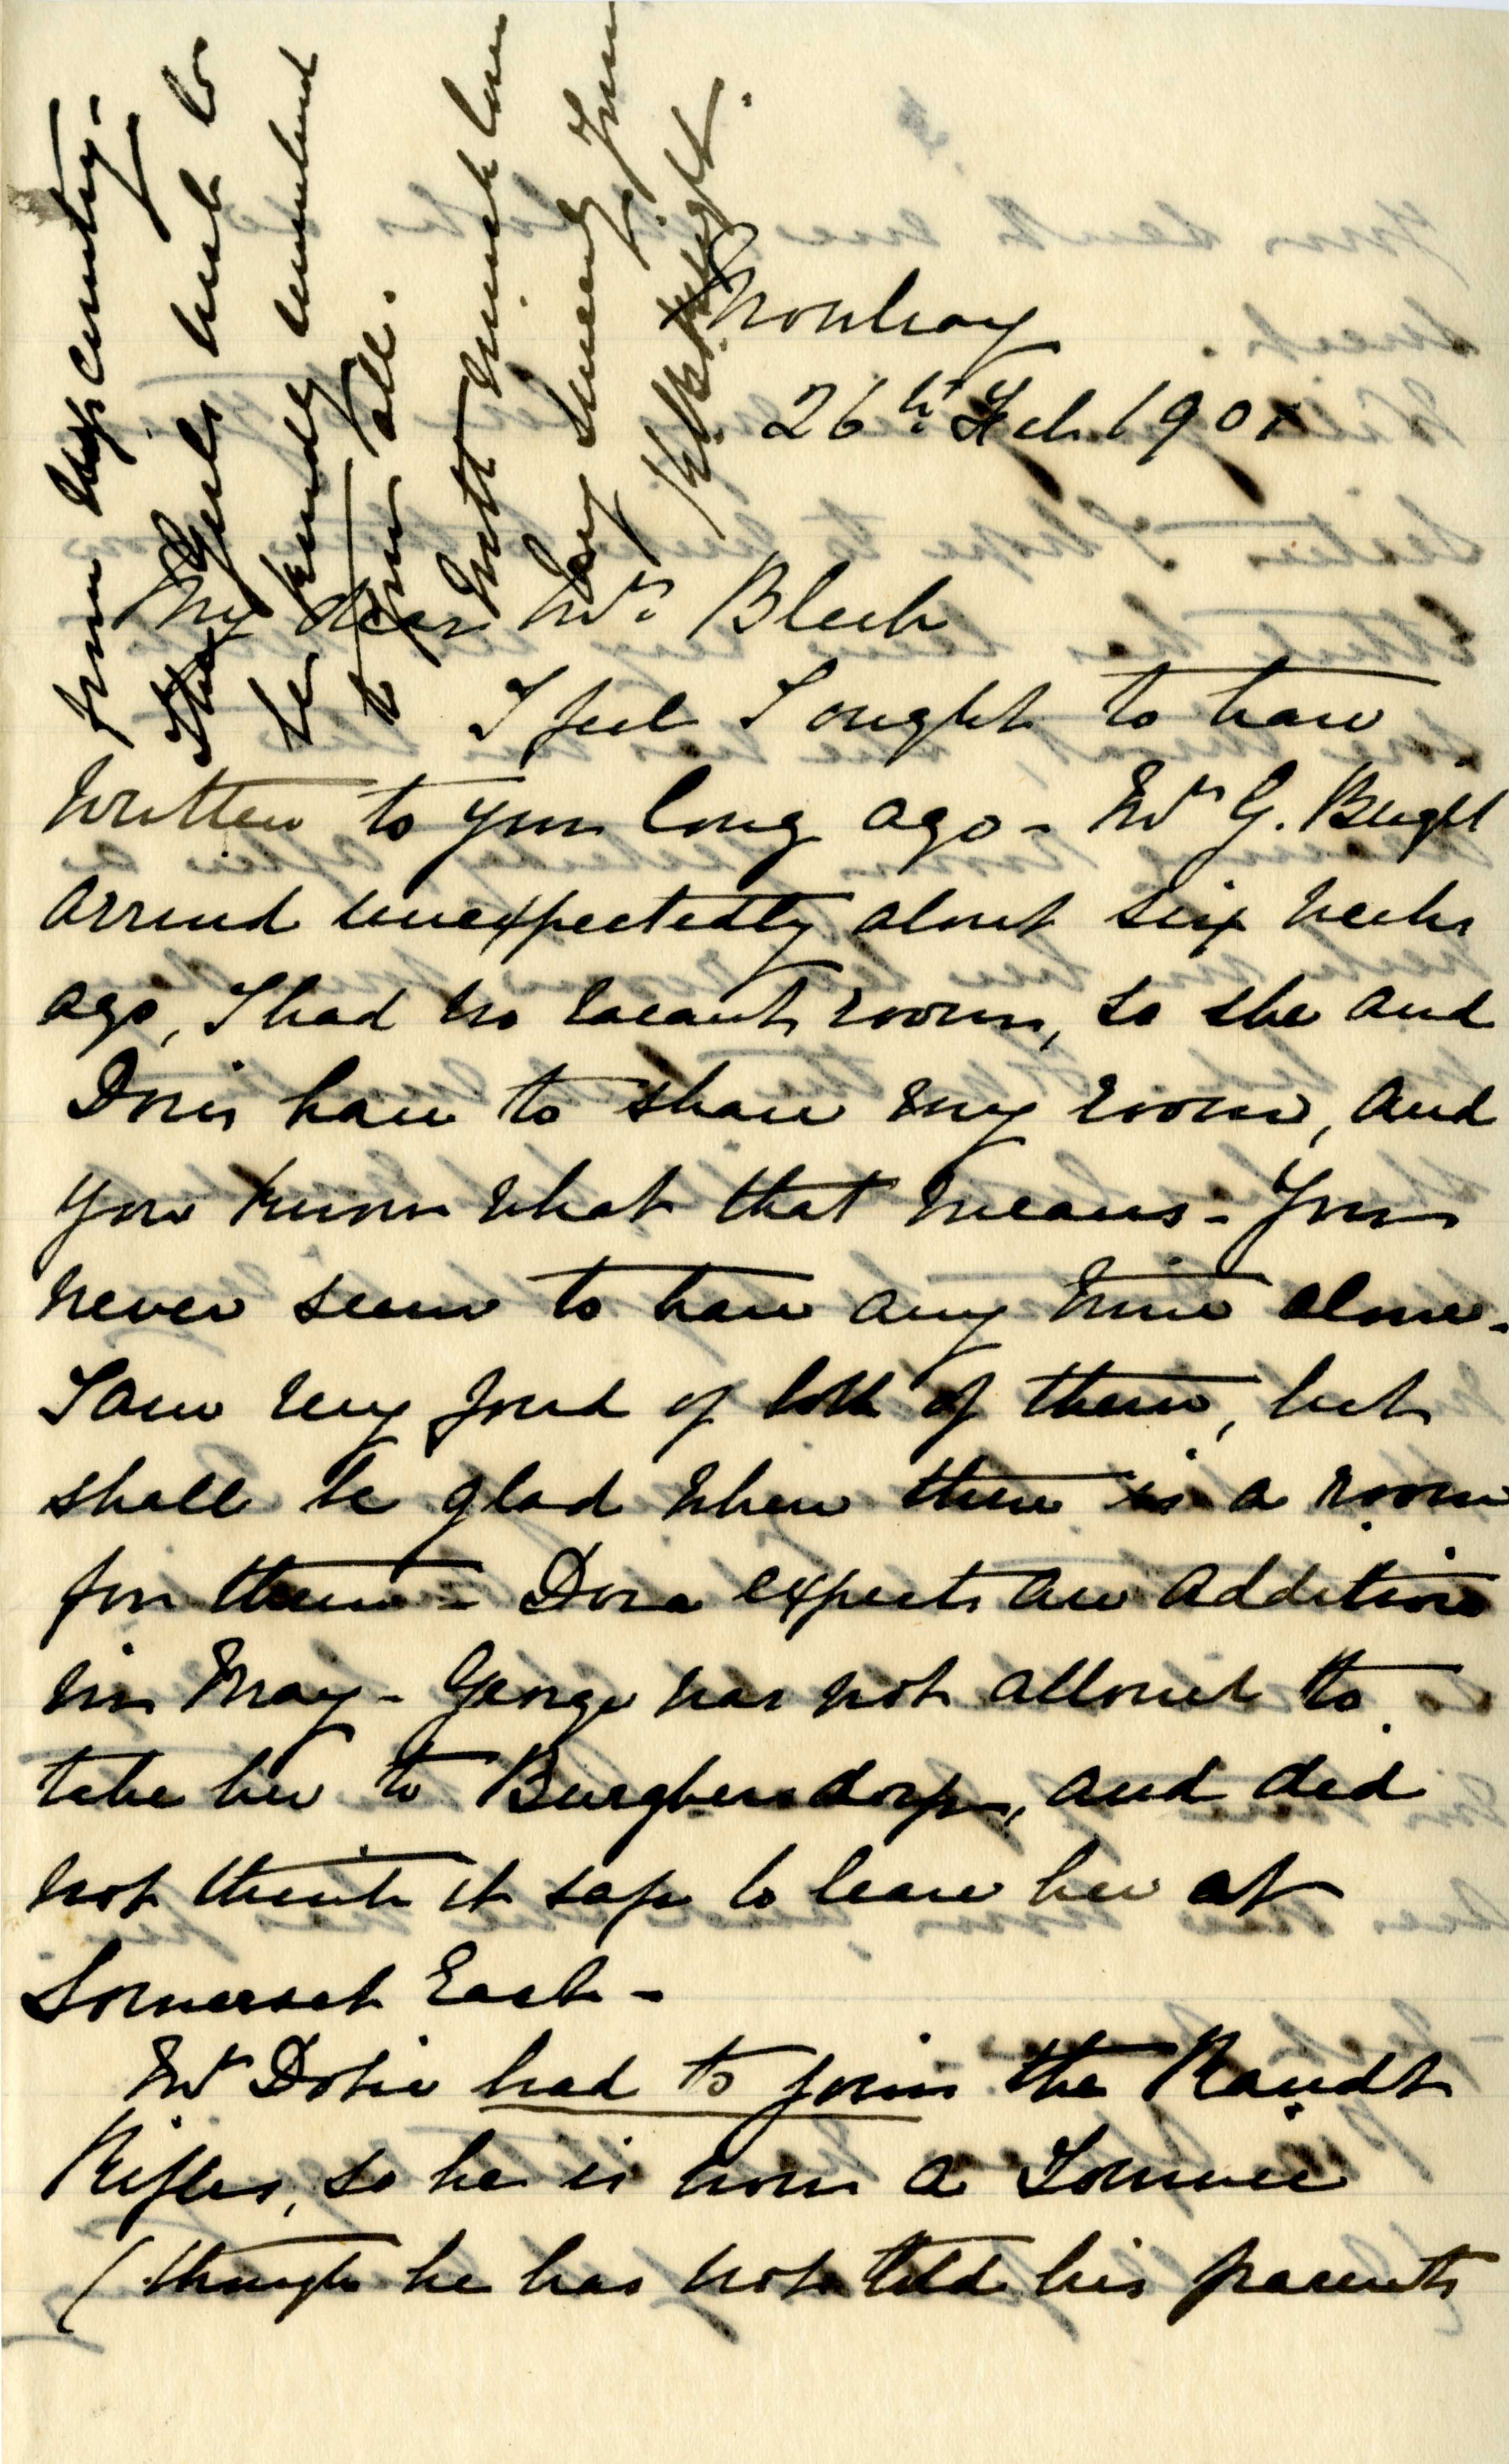 Mowbray
26th Feb. 1901
My dear Mrs. Bleek
I feel I ought to have
written to you long ago - Mrs G. Bught
arrived unexpectedly about six weeks
ago, I had no vacant room, so she and
Doris have to share my room, and
you know what that means - You
never seem to have any time alone -
I am very fond of both of them, but
shall be glad when there is a room
for them - Dora expects an addition
in May - George was not allowed to
take her to Burghersdorp, and did
not think it safe to leave her at
Somerset East -
Mr Dobie had to join the Randt
Rifles, so he is now a Tommie
(though he has not told his parents
your country -
The Girls wish to
be kindly remembered
to you all.
With much love
Very sincerely Yours